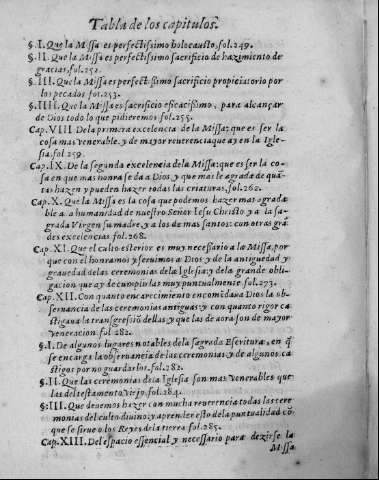 Tabla de los capitulos.
§.I. Que la Missa es perfectissimo holocausto, fol.249.
§.II. Que la Missa es perfectissimo sacrificio de hazimiento de
gracias, fol.252.
§.III. Que la Missa es perfectissimo sacrificio propiciatorio por
los pecados fol.253.
§.IIII. Que la Missa es sacrificio eficacissimo, para alcançar
de Dios todo lo que pidieremos fol.255.
Cap. VIII. De la primera excelencia de la Missa: que es ser la
cosa mas venerable, y de mayor reuerencia que ay en la Igle-
sia. fol 259
Cap. IX. De la segunda excelencia de la Missa: que es ser la co-
sa en que mas honra se da a Dios, y que mas le agrada de quã
tas hazen y pueden hazer todas las criaturas, fol.262.
Cap. X. Que la Missa es la cosa que podemos hazer mas agrada
ble a la humanidad de nuestro Señor Iesu Christo y a la sa-
grada Virgen su madre, y a los de mas santos: con otras grã
des excelencias fol.268.
Cap. XI. Que el culto esterior es muy necessario a la Missa, por
que con el honramos y seruimos a Dios y de la antiguedad y
grauedad de las ceremonias de la Iglesia: y de la grande obli-
gacion que ay de cumplirlas muy puntualmente fol.273.
Cap. XII. Con quanto encarecimiento encomẽdaua Dios la ob-
seruancia de las ceremonias antiguas: y con quanto rigor ca
stigaua la transgressiõ dellas, y que las de aora son de mayor
veneracion fol 282.
§.I. De algunos lugares notables de la sagrada Escritura, en q̃
se encarga la obseruancia de las ceremonias, y de algunos ca
stigos por no guardarlos. fol.282.
§.II. Que las ceremonias de la Iglesia son mas venerables que
las del testamento viejo. fol.284.
§.III. Que deuemos hazer con mucha reuerencia todas las cere
monias del culto diuino: y aprender esto de la puntualidad cõ
que se sirue a los Reyes de la tierra fol.285.
Cap. XIII. Del espacio essencial y necessario para dezirse la
Missa